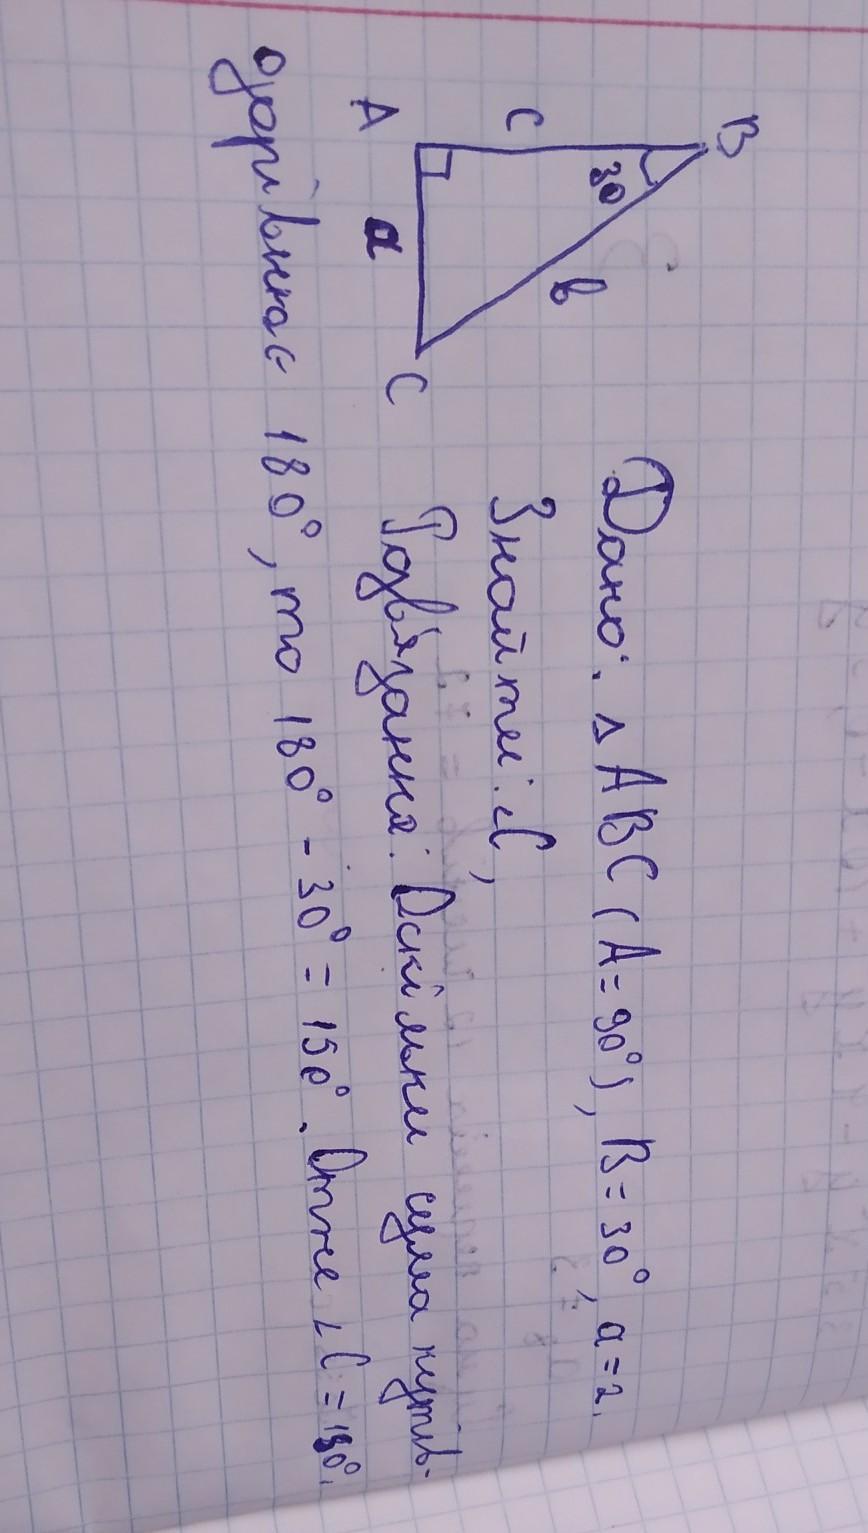 B
C
30
в
A
a
C
Дано: △ABC (A=90°), B=30°, a=2.
Знайти: ∠C,
Розв'язання: Оскільки сума кутів
дорівнює 180°, то 180° - 30° = 150°. Отже, ∠C = 180°.